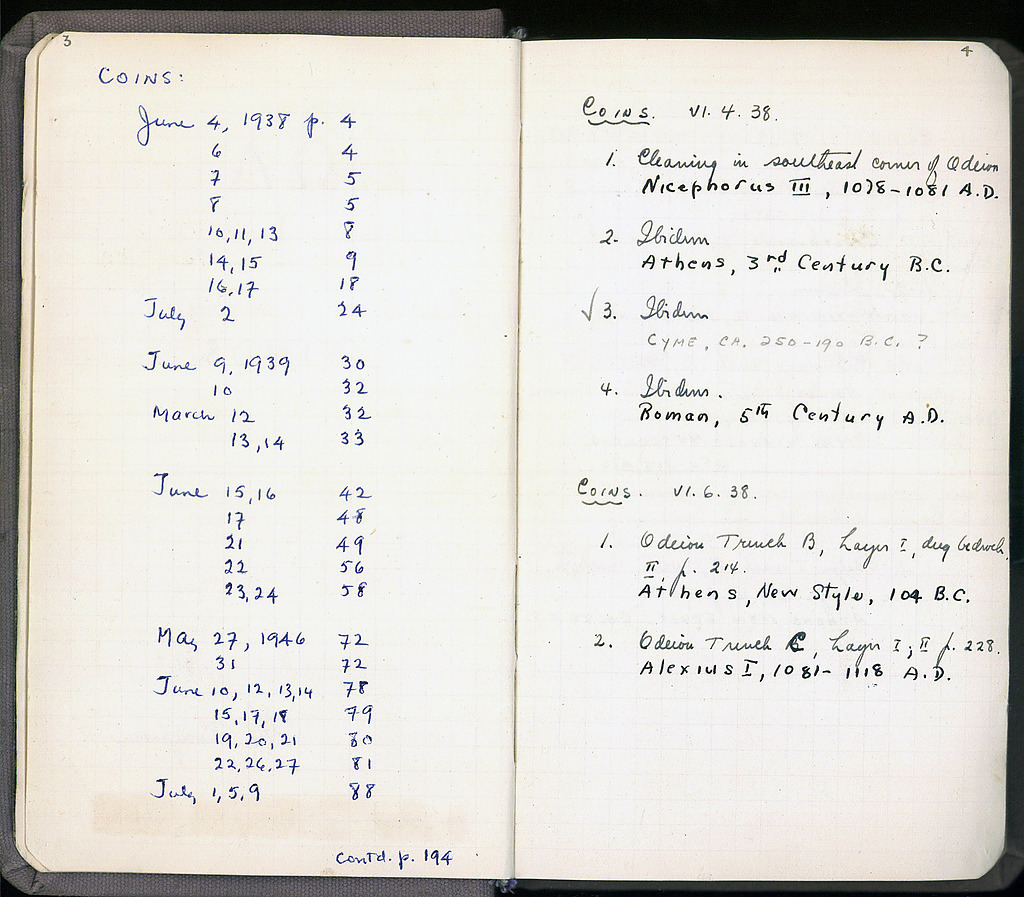 3
COINS:
June 4, 1938 p. 4
6 4
7 5
8 5
10, 11, 13 8
14, 15 9
16, 17 18
July 2 24
June 9, 1939 30
10 32
March 12 32
13, 14 33
June 15, 16 42
17 48
21 49
22 56
23, 24 58
May 27, 1946 72
31 72
June 10, 12, 13, 14 78
15, 17, 18 79
19, 20, 21 80
22, 26, 27 81
July 1, 5, 9 88
Contd. p. 194
4
Coins. VI. 4. 38.
1. Cleaning in southeast corner of Odeion
Nicephorus III, 1078-1081 A.D.
2. Ibidem
Athens, 3rd Century B.C.
√ 3. Ibidem
CYME, CA. 250-190 B.C. ?
4. Ibidem.
Roman, 5th Century A.D.
Coins. VI. 6. 38.
1. Odeion Trench B, Layer I, dug bedrock,
II, p. 214.
Athens, New Style, 104 B.C.
2. Odeion Trench C, Layer I; II p. 228.
Alexius I, 1081-1118 A.D.